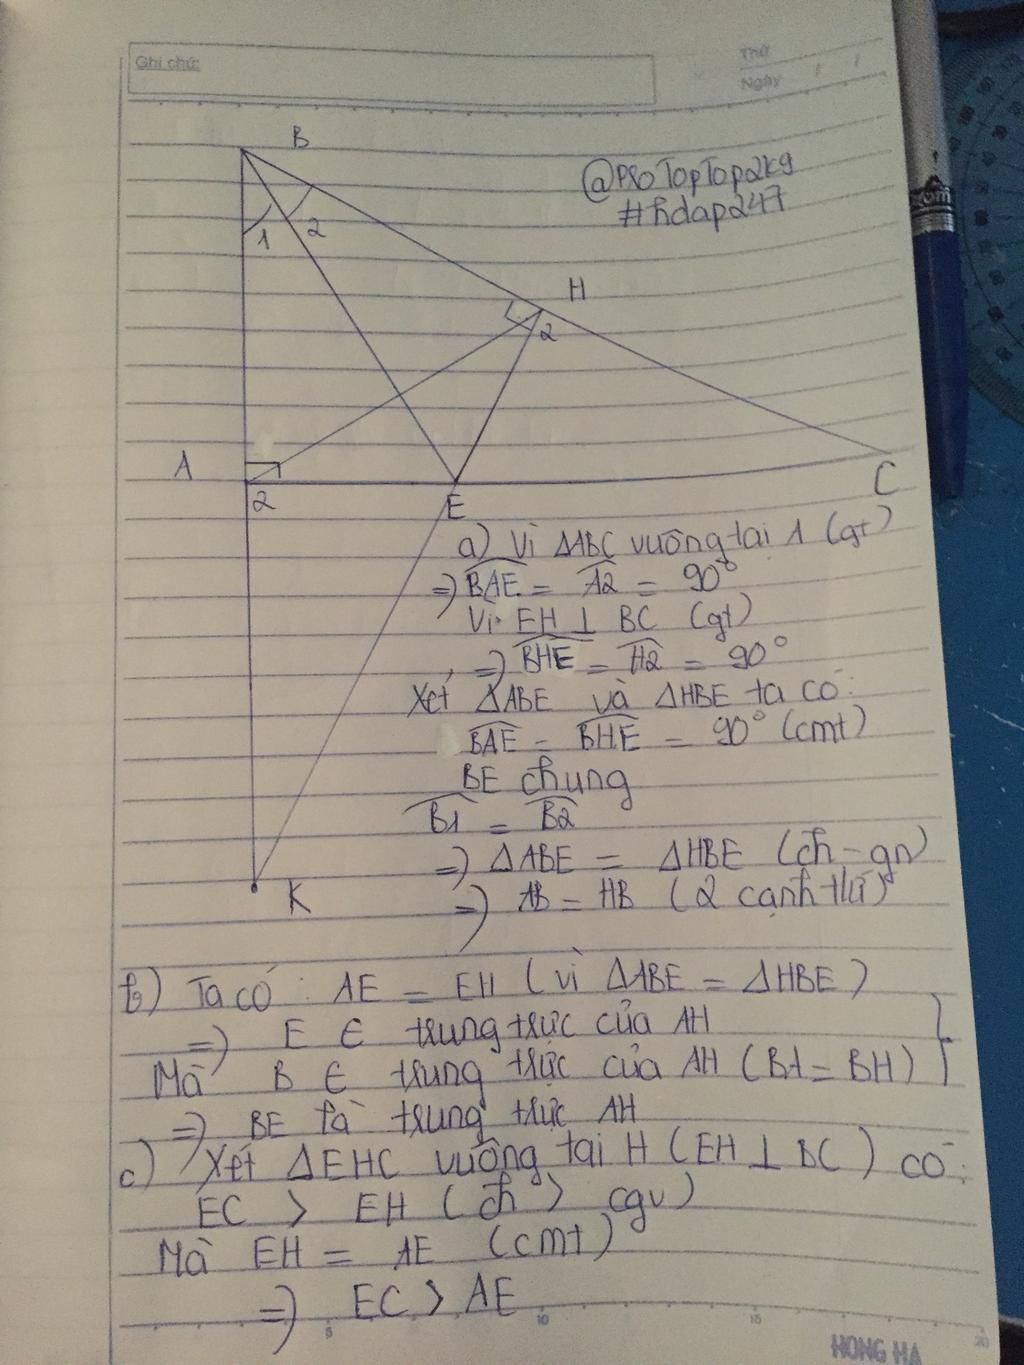 Ghi chú:
Thứ
Ngày / /
@ProTopTop2k9
#hdap247
B
1
2
H
2
A
2
E
C
K
a) Vì ΔABC vuông tại A (gt)
=) \widehat{BAE} = \widehat{A2} = 90°
Vì EH ⊥ BC (gt)
=) \widehat{BHE} = \widehat{H2} = 90°
Xét ΔABE và ΔHBE ta có:
\widehat{BAE} = \widehat{BHE} = 90° (cmt)
BE chung
\widehat{B1} = \widehat{B2}
=) ΔABE = ΔHBE (ch - gn)
=) AB = HB (2 cạnh tứ)
b) Ta có: AE = EH (vì ΔABE = ΔHBE)
=) E ∈ trung trực của AH
Mà B ∈ trung trực của AH (BA = BH) }
=) BE là trung trực AH
c) Xét ΔEHC vuông tại H (EH ⊥ BC) có:
EC > EH (ch > cgv)
Mà EH = AE (cmt)
=) EC > AE
5 10 15 20
HONG HA